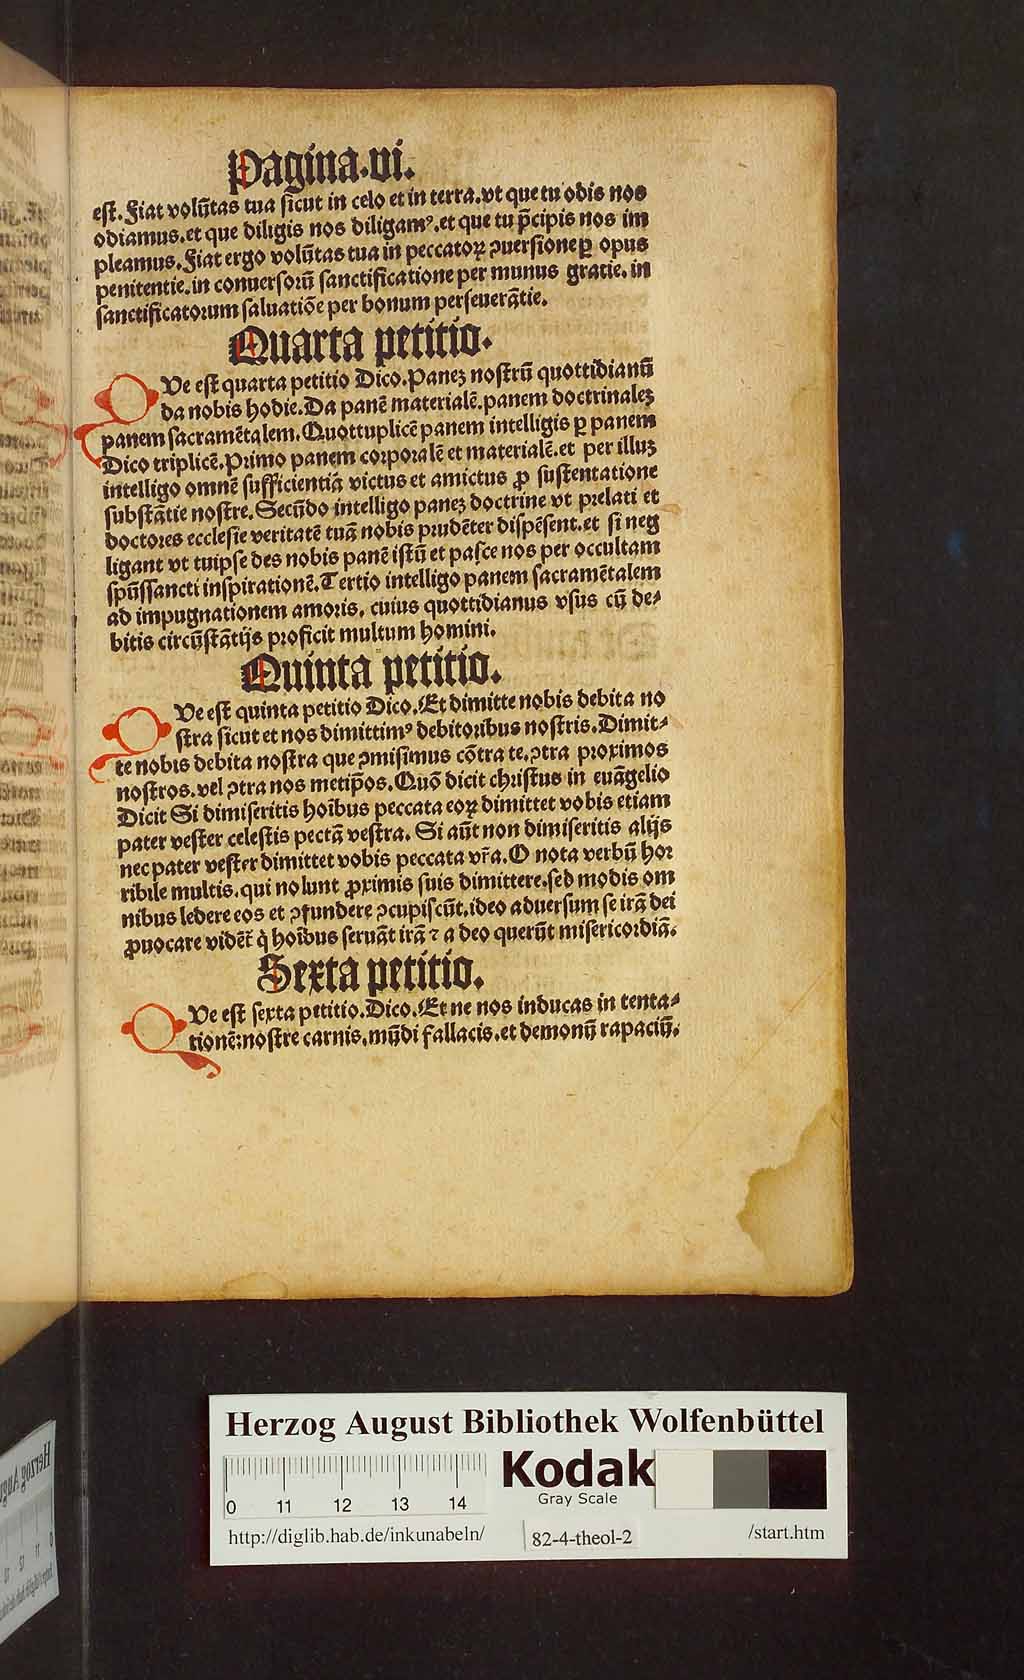 Pagina.vi.
est. Fiat volũtas tua sicut in celo et in terra.vt que tu odis nos
odiamus.et que diligis nos diligamꝰ.et que tu p̄cipis nos im
pleamus.Fiat ergo volũtas tua in peccatoꝝ ꝯuersione ꝑ opus
penitentie.in conuersorũ sanctificatione per munus gratie. in
sanctificatorum saluatiõe per bonum perseuerãtie.
Quarta petitio.
QVe est quarta petitio Dico.Paneȝ nostrũ quottidianũ
da nobis hodie.Da panẽ materialẽ.panem doctrinaleȝ
panem sacramẽtalem.Quottuplicẽ panem intelligis ꝑ panem
Dico triplicẽ.Primo panem corporalẽ et materialẽ.et per illuȝ
intelligo omnẽ sufficientiã victus et amictus ꝓ sustentatione
substãtie nostre.Secũdo intelligo paneȝ doctrine vt prelati et
doctores ecclesie veritatẽ tuã nobis prudẽter dispẽsent.et si neg
ligant vt tuipse des nobis panẽ istũ et pasce nos per occultam
spũssancti inspirationẽ.Tertio intelligo panem sacramẽtalem
ad impugnationem amoris. cuius quottidianus vsus cũ de⸗
bitis circũstãtijs proficit multum homini.
Quinta petitio.
QVe est quinta petitio Dico.Et dimitte nobis debita no
stra sicut et nos dimittimꝰ debitoribus nostris.Dimit⸗
te nobis debita nostra que ꝯmisimus cõtra te.ꝯtra proximos
nostros.vel ꝯtra nos metip̄os.Quõ dicit christus in euãgelio
Dicit Si dimiseritis hoĩbus peccata eoꝝ dimittet vobis etiam
pater vester celestis pectã vestra. Si aũt non dimiseritis alijs
nec pater vester dimittet vobis peccata vr̃a.O nota verbũ hor
ribile multis.qui nolunt ꝓximis suis dimittere.sed modis om
nibus ledere eos et ꝯfundere ꝯcupiscũt.ideo aduersum se irã dei
ꝓuocare vidẽt̃ q̇ hoĩbus seruãt irã ⁊ a deo querũt misericordiã.
Sexta petitio.
QVe est sexta petitio.Dico.Et ne nos inducas in tenta⸗
tionẽ:nostre carnis.mũdi fallacis.et demonũ rapaciũ.
Herzog August Bibliothek Wolfenbüttel
0 11 12 13 14
Kodak
Gray Scale
http://diglib.hab.de/inkunabeln/
82-4-theol-2
/start.htm